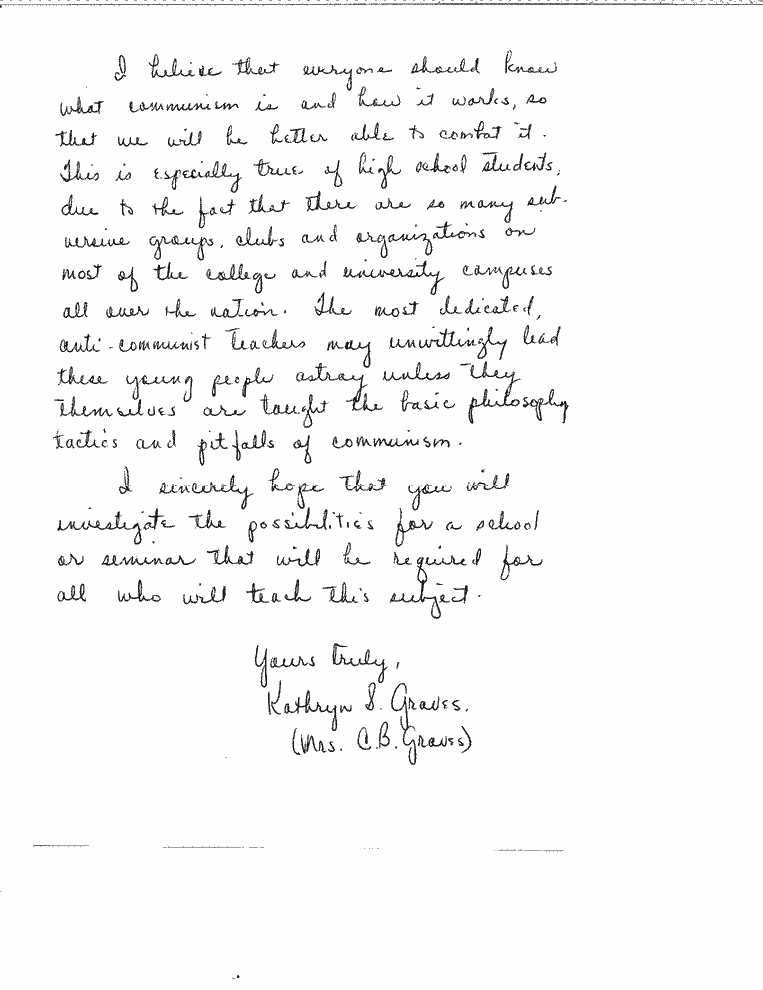 I believe that everyone should know
what communism is and how it works, so
that we will be better able to combat it.
This is especially true of high school students,
due to the fact that there are so many sub-
versive groups, clubs and organizations on
most of the college and university campuses
all over the nation. The most dedicated,
anti-communist teachers may unwittingly lead
these young people astray unless they
themselves are taught the basic philosophy
tactics and pitfalls of communism.
I sincerely hope that you will
investigate the possibilities for a school
or seminar that will be required for
all who will teach this subject.
Yours truly,
Kathryn S. Graves.
(Mrs. C.B. Graves)